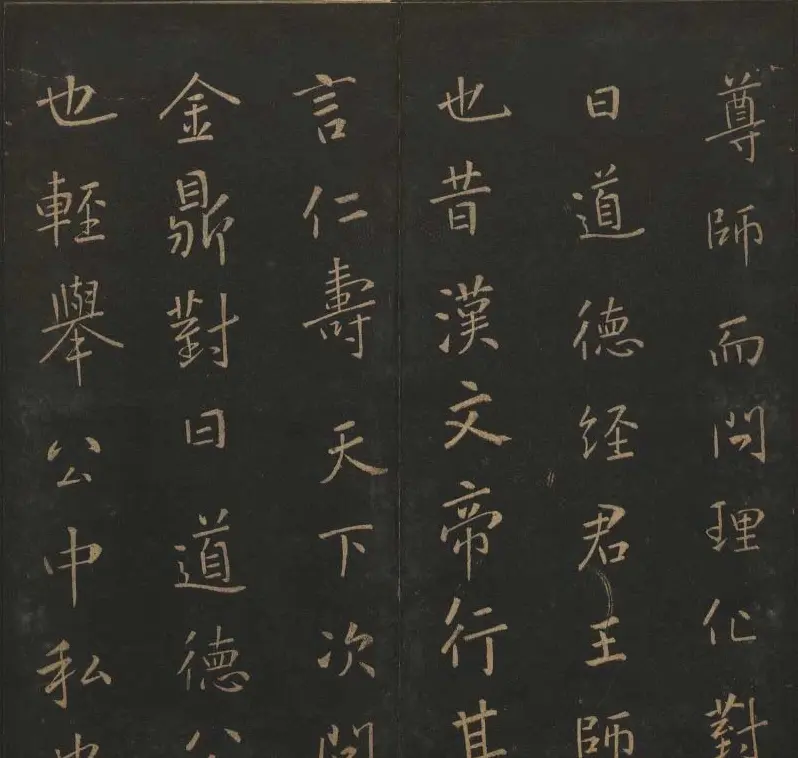 尊師而問理化對
曰道德経君王師
也昔漢文帝行其
言仁壽天下次問
金鼎對曰道德公
也輕舉公中私中